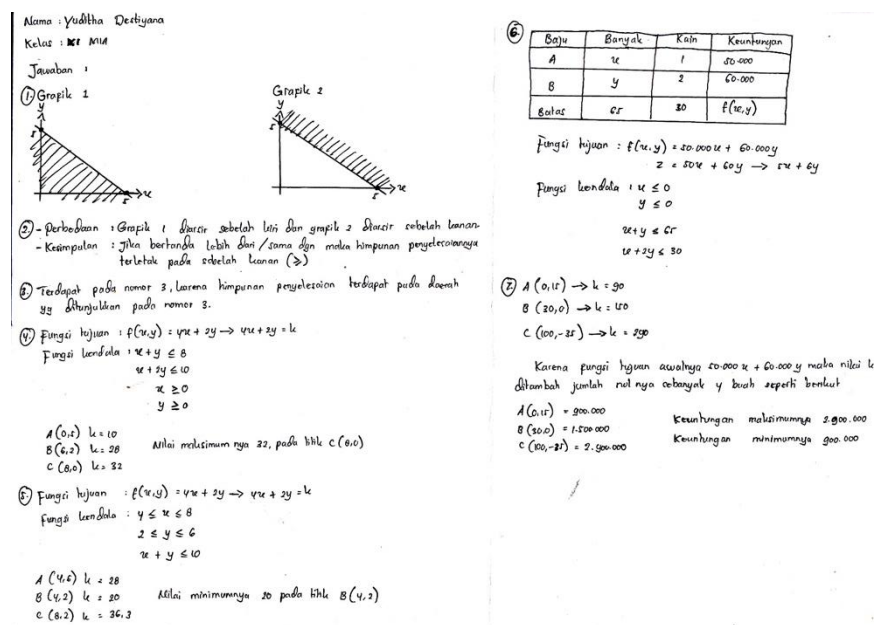 Nama : Yuditha Destiyana
Kelas : XI MIA
Jawaban :
1. Grafik 1
Grafik 2
y
5
5
x
y
5
5
x
2. - Perbedaan : Grafik 1 diarsir sebelah kiri dan grafik 2 diarsir sebelah kanan
- Kesimpulan : Jika bertanda lebih dari / sama dgn maka himpunan penyelesaiannya
terletak pada sebelah kanan (≥)
3. Terdapat pada nomor 3, karena himpunan penyelesaian terdapat pada daerah
yg ditunjukkan pada nomor 3.
4. Fungsi tujuan : f(x,y) = 4x + 2y → 4x + 2y = k
Fungsi kendala : x + y ≤ 8
x + 2y ≤ 10
x ≥ 0
y ≥ 0
A (0,5) k = 10
B (6,2) k = 28
C (8,0) k = 32
Nilai maksimum nya 32, pada titik C (8,0)
5. Fungsi tujuan : f(x,y) = 4x + 2y → 4x + 2y = k
Fungsi kendala : 4 ≤ x ≤ 8
2 ≤ y ≤ 6
x + y ≤ 10
A (4,6) k = 28
B (4,2) k = 20
C (8,2) k = 36,3
Nilai minimumnya 20 pada titik B (4,2)
6.
Baju Banyak Kain Keuntungan
A x 1 50.000
B y 2 60.000
Batas 65 30 f(x,y)
Fungsi tujuan : f(x,y) = 50.000x + 60.000y
z = 50x + 60y → 5x + 6y
Fungsi kendala : x ≤ 0
y ≤ 0
x+y ≤ 65
x+2y ≤ 30
7. A (0,15) → k = 90
B (30,0) → k = 150
C (100,-35) → k = 290
Karena fungsi tujuan awalnya 50.000 x + 60.000 y maka nilai k
ditambah jumlah nol nya sebanyak 4 buah seperti berikut
A (0,15) = 900.000
B (30,0) = 1.500.000
C (100,-35) = 2.900.000
Keuntungan maksimumnya 2.900.000
Keuntungan minimumnya 900.000